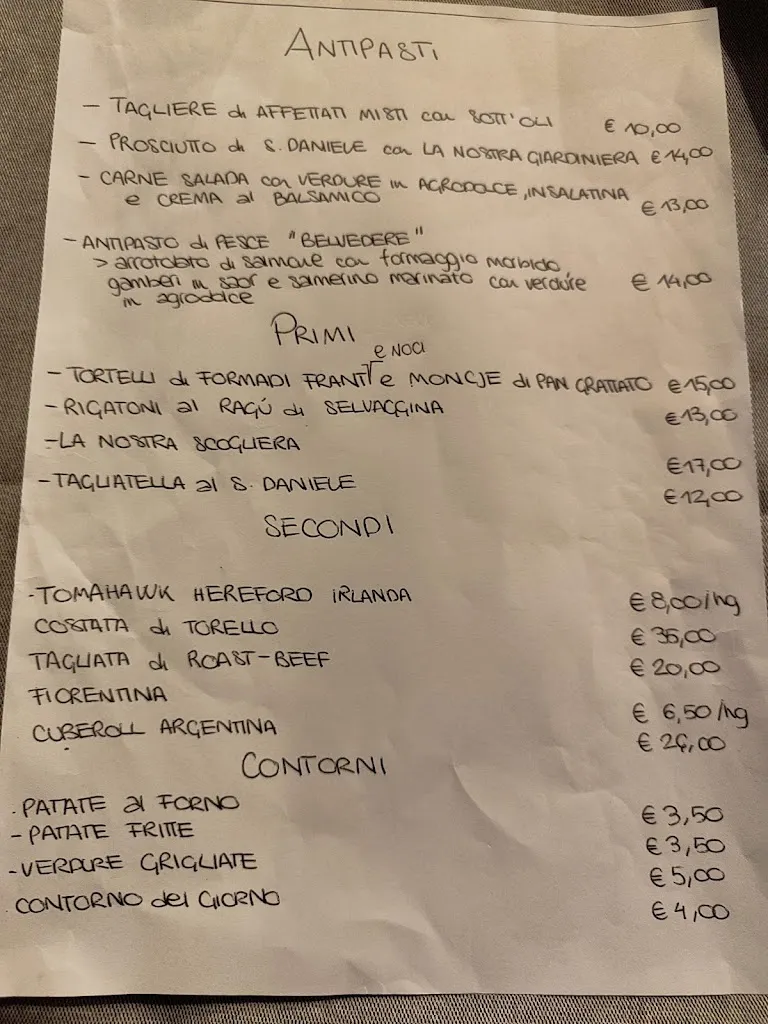 ANTIPASTI
- TAGLIERE di AFFETTATI MISTI con SOTT'OLI € 10,00
- PROSCIUTTO di S. DANIELE con LA NOSTRA GIARDINIERA € 14,00
- CARNE SALADA con VERDURE in AGRODOLCE, INSALATINA
e CREMA al BALSAMICO € 13,00
- ANTIPASTO di PESCE "BELVEDERE"
> arrotolato di salmone con formaggio morbido
gamberi in saor e salmerino marinato con verdure € 14,00
in agrodolce
PRIMI
e NOCI
- TORTELLI di FORMADI FRANT e MONCJE di PAN GRATTATO € 15,00
- RIGATONI al RAGÚ di SELVAGGINA € 13,00
- LA NOSTRA SCOGLIERA € 17,00
- TAGLIATELLA al S. DANIELE € 12,00
SECONDI
- TOMAHAWK HEREFORD IRLANDA € 8,00/hg
COSTATA di TORELLO € 35,00
TAGLIATA di ROAST-BEEF € 20,00
FIORENTINA € 6,50/hg
CUBEROLL ARGENTINA
CONTORNI
. PATATE al FORNO € 3,50
- PATATE FRITTE € 3,50
- VERDURE GRIGLIATE € 5,00
CONTORNO del GIORNO € 4,00